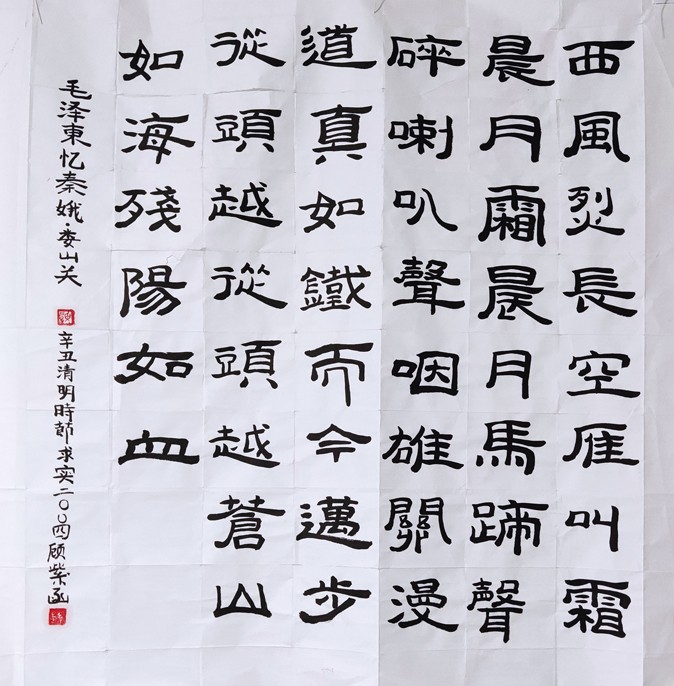 西風烈長空雁叫霜
晨月霜晨月馬蹄聲
碎喇叭聲咽雄關漫
道真如鐵而今邁步
從頭越從頭越蒼山
如海殘陽如血
毛泽東忆秦娥·娄山关
辛丑清明時節求实二〇〇四顾紫函